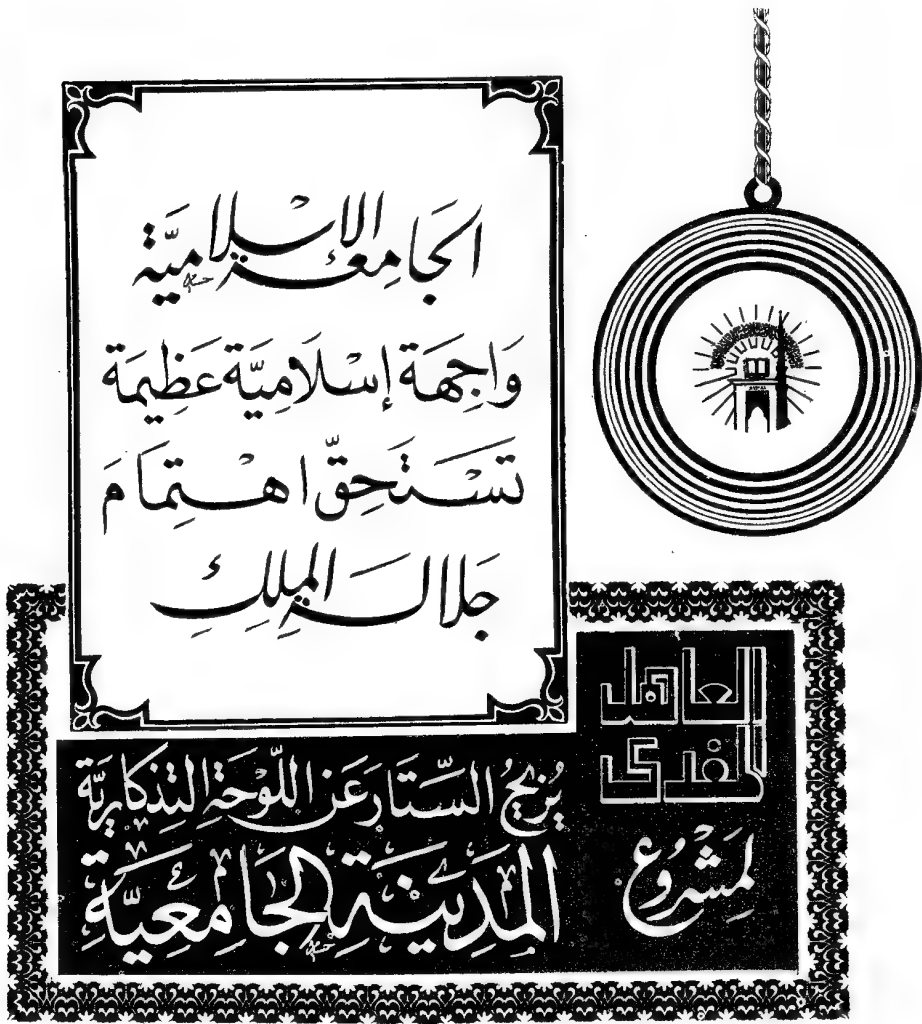 الجَامِعَة الإسْلامِيَّة
وَاجِهَة إِسْلَامِيَّة عَظِيمَة
تَسْتَحِقّ اهْتِمَامَ
جَلالَة المَلِكِ
العاهل
المفدى
يُزيحُ السِّتَارَ عَن اللَّوْحَةِ التِّذكارِيَّة
لِمَشْرُوع
المَدِينَةِ الجَامِعِيَّةِ